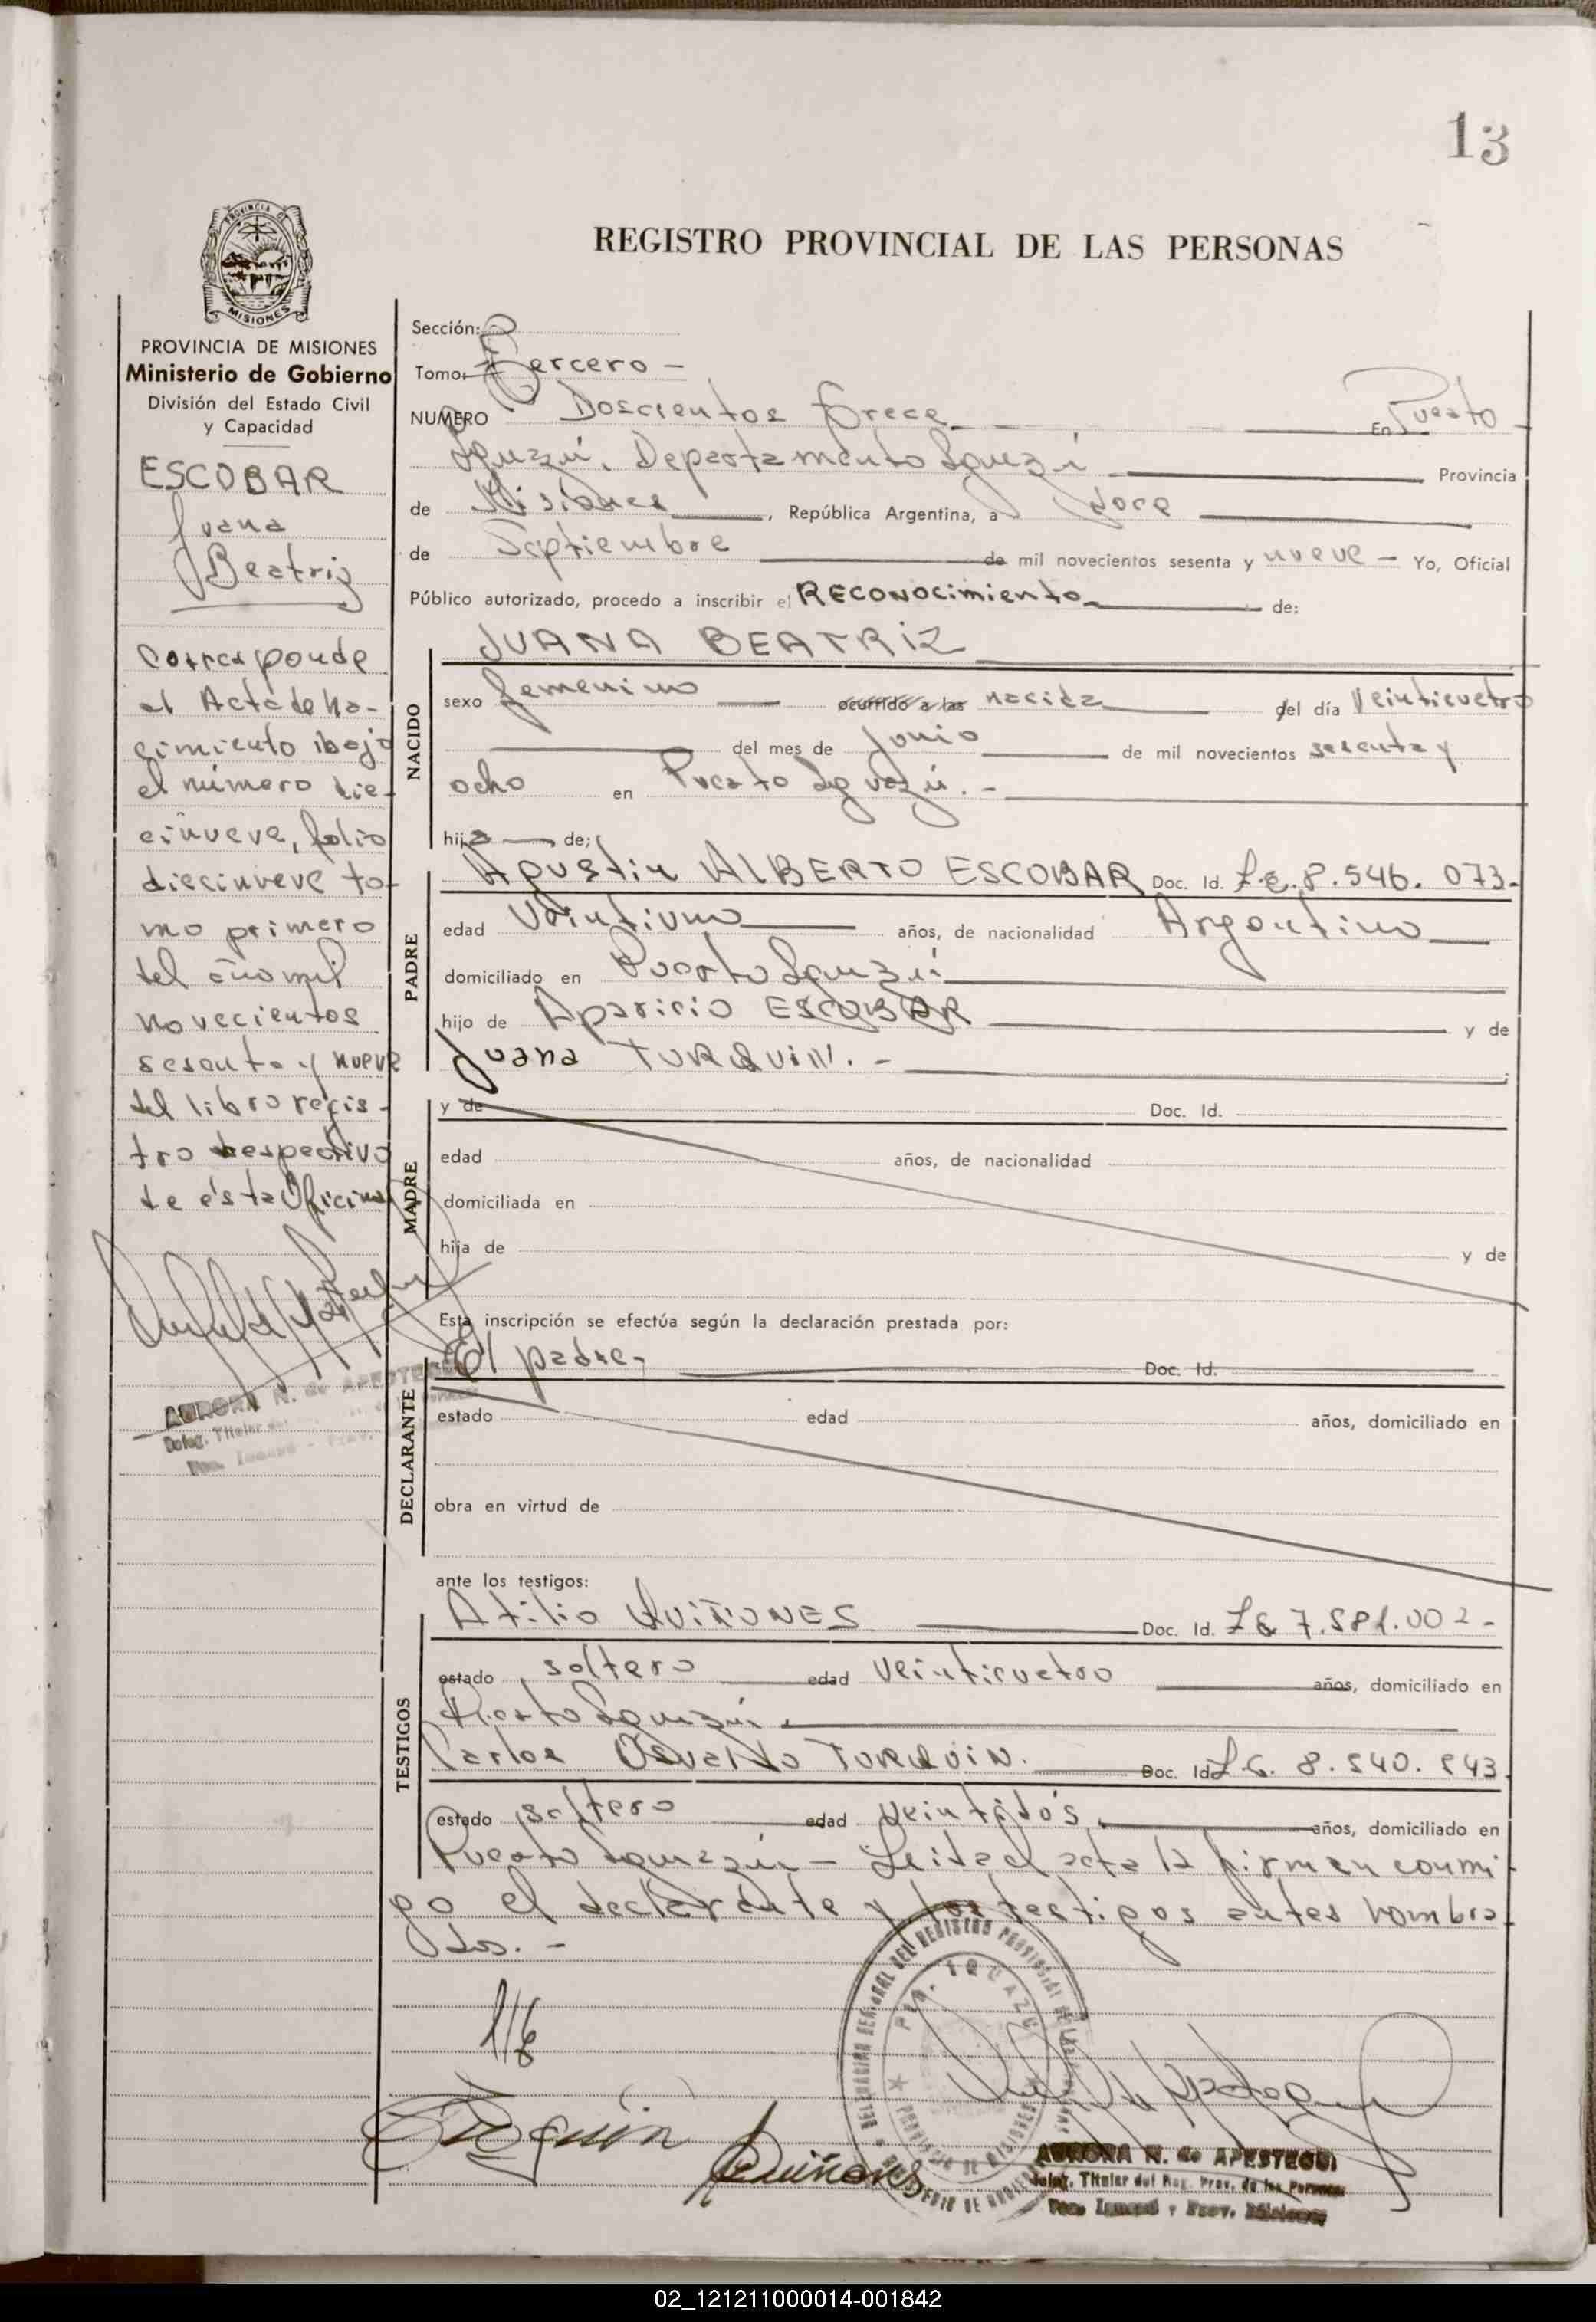 13
PROVINCIA DE
MISIONES
REGISTRO PROVINCIAL DE LAS PERSONAS
PROVINCIA DE MISIONES
Ministerio de Gobierno
División del Estado Civil
y Capacidad
ESCOBAR
Juana
Beatriz
Corresponde
al Acta de na-
cimiento bajo
el número die-
cinueve, folio
diecinueve to-
mo primero
del año mil
novecientos
sesenta y nueve
del libro regis-
tro respectivo
de ésta Oficina
AURORA N. de APESTEGUI
Deleg. Titular del
Sección:
Tomo: Tercero -
NUMERO Doscientos trece En Puerto
Iguazú, Departamento Iguazú Provincia
de Misiones, República Argentina, a doce
de Septiembre de mil novecientos sesenta y nueve - Yo, Oficial
Público autorizado, procedo a inscribir el RECONOCIMIENTO de:
NACIDO
JUANA BEATRIZ
sexo femenino ocurrido a las nacida del día Veinticuatro
del mes de Junio de mil novecientos sesenta y
ocho en Puerto Iguazú. -
hija de:
PADRE
Agustin ALBERTO ESCOBAR Doc. Id. L.E. 8.546.073-
edad Veintiuno años, de nacionalidad Argentino
domiciliado en Puerto Iguazú
hijo de Aparicio ESCOBAR y de
Juana TURQUIN. -
MADRE
y de Doc. Id.
edad años, de nacionalidad
domiciliada en
hija de y de
Esta inscripción se efectúa según la declaración prestada por:
DECLARANTE
El padre- Doc. Id.
estado edad años, domiciliado en
obra en virtud de
ante los testigos:
TESTIGOS
Atilio QUIÑONES Doc. Id. LE 7.581.002-
estado soltero edad veinticuatro años, domiciliado en
Puerto Iguazú.
Carlos Osvaldo TURQUIN. Doc. Id. L.E. 8.540.843
estado soltero edad veintidós años, domiciliado en
Puerto Iguazú - Leida el acta la firman conmi-
go el declarante y los testigos antes nombra-
dos. -
DELEGACION SECCIONAL DEL REGISTRO PROVINCIAL DE LAS PERSONAS
PTO. IGUAZU
PROVINCIA DE MISIONES
Turquin
Quiñones
AURORA N. de APESTEGUI
Deleg. Titular del Reg. Prov. de las Personas
Pto. Iguazú - Prov. Misiones
02_121211000014-001842